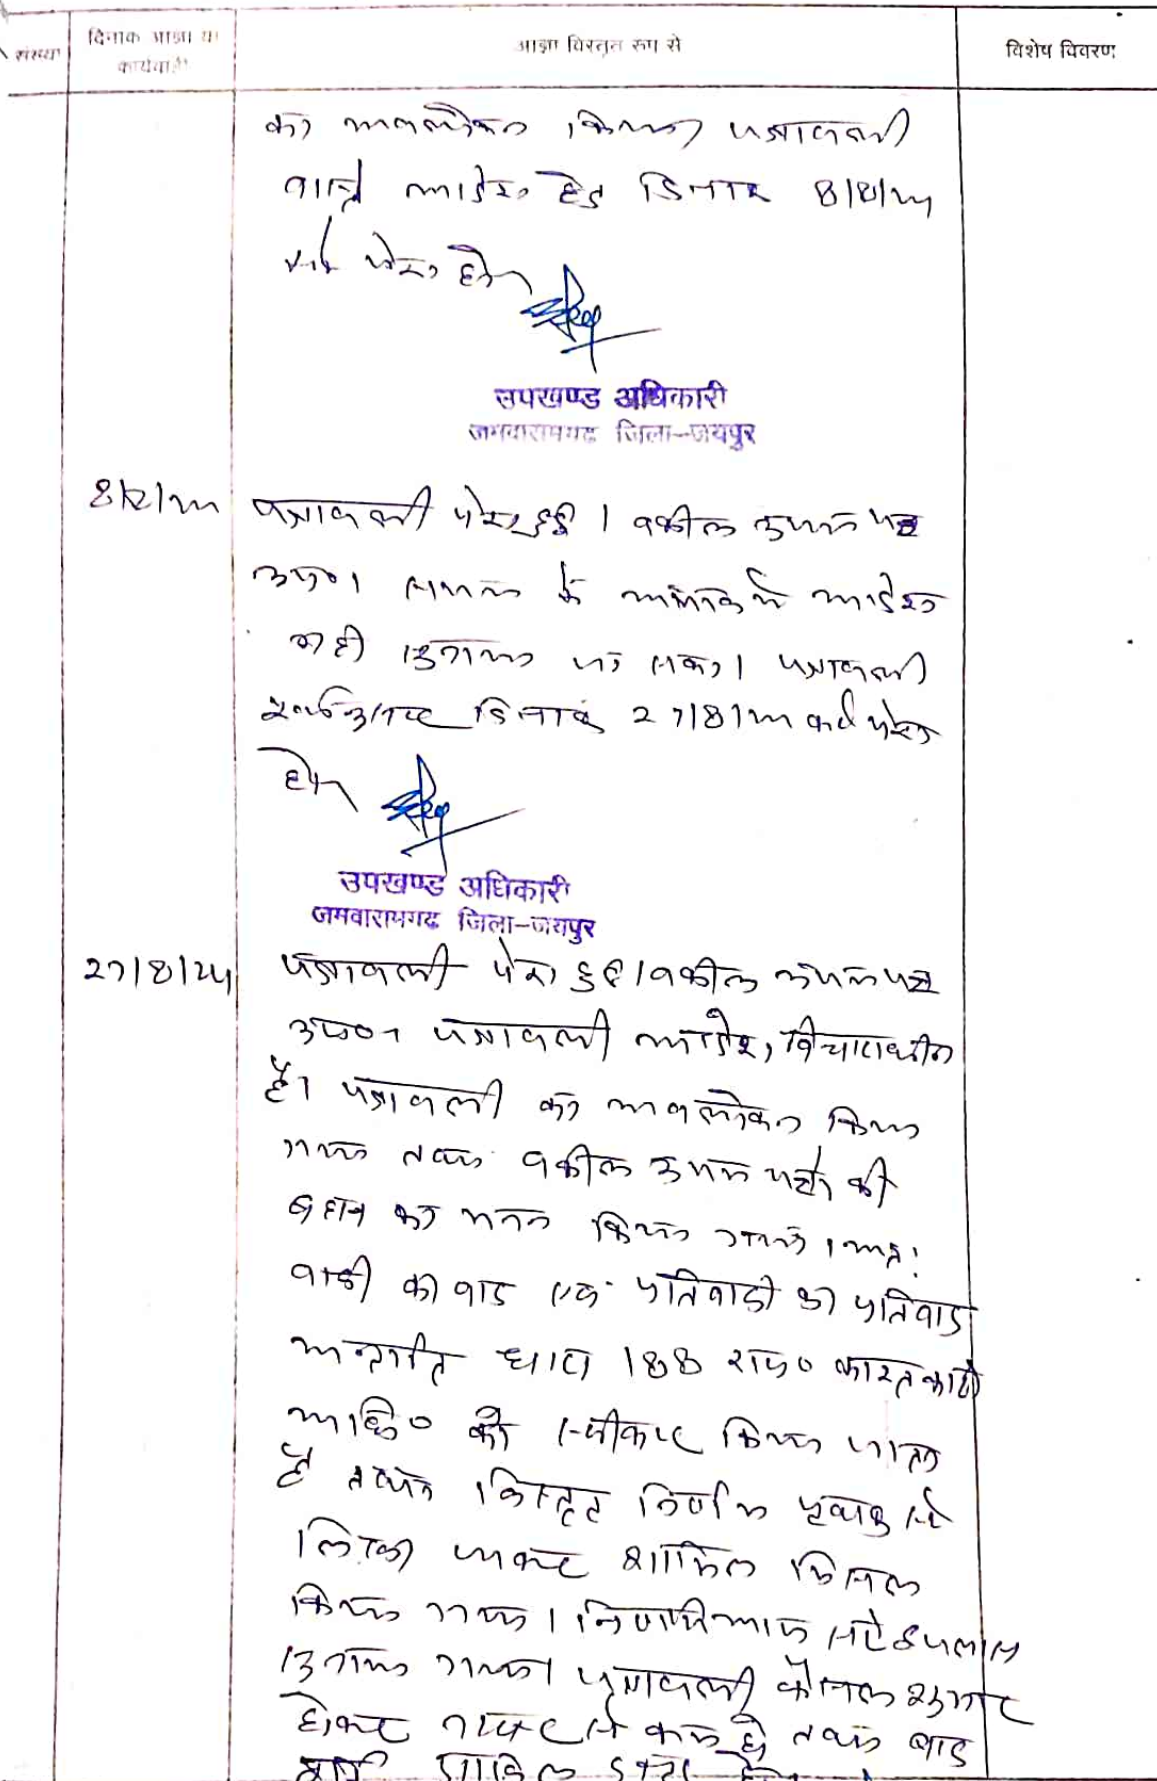 संख्या दिनांक आज्ञा या कार्यवाही आज्ञा विस्तृत रूप से विशेष विवरण
का अवलोकन किया पत्रावली
वास्ते आदेश हेतु दिनांक 8/8/24
को पेश हो।
उपखण्ड अधिकारी
जमवारामगढ जिला-जयपुर
पत्रावली पेश हुई। वकील उभय पक्ष
उप०। समय के अभाव में आदेश
नही लिखाया जा सका। पत्रावली
दिनांक 27/8/24 को पेश
हो।
उपखण्ड अधिकारी
जमवारामगढ जिला-जयपुर
27/8/24 पत्रावली पेश हुई। वकील उभय पक्ष
उप०। पत्रावली आदेश, विचाराधीन
है। पत्रावली का अवलोकन किया
गया तथा वकील उभय पक्षो की
बहस का मनन किया गया। अतः
वादी का वाद एवं प्रतिवादी का प्रतिवाद
अन्तर्गत धारा 188 राज० काश्तकारी
अधि० को स्वीकार किया जाता
है तथा विस्तृत निर्णय पृथक से
लिखा जाकर शामिल मिसल
किया गया। निर्णय
लिखाया गया। पत्रावली फैसल शुमार
होकर नम्बर से कम हो तथा बाद